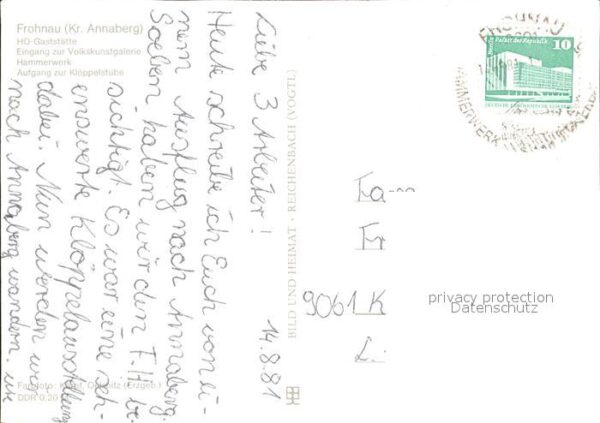 Frohnau (Kr. Annaberg)
HO-Gaststätte
Eingang zur Volkskunstgalerie
Hammerwerk
Aufgang zur Klöppelstube
14.8.81
Liebe 3 Arleiter!
Heute schreibe ich Euch von ei-
nem Ausflug nach Annaberg.
Soeben haben wir den F.H. be-
sichtigt. Es war eine seh-
enswerte Klöppelausstellung
dabei. Nun werden wir
nach Annaberg wandern. wie
DDR 0,20
BILD UND HEIMAT · REICHENBACH (VOGTL.)
FROHNAU
Palast der Republik
10
HAMMERWERK
Fa---
Fr
9061 K
L.
privacy protection
Datenschutz